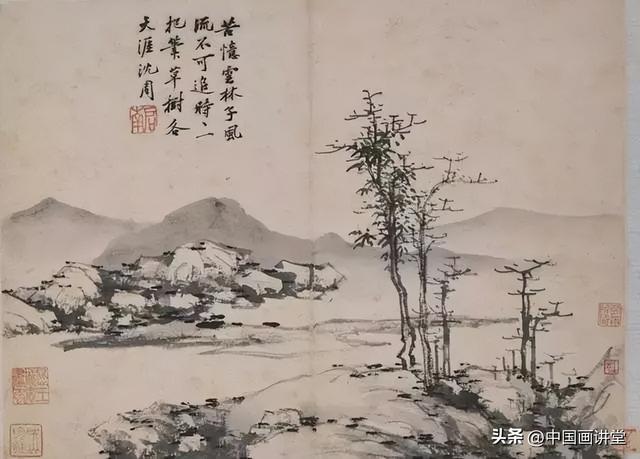 苦憶雲林子風
流不可追時〻
把筆草樹各
天涯沈周
啟南
头条 @中国画讲堂